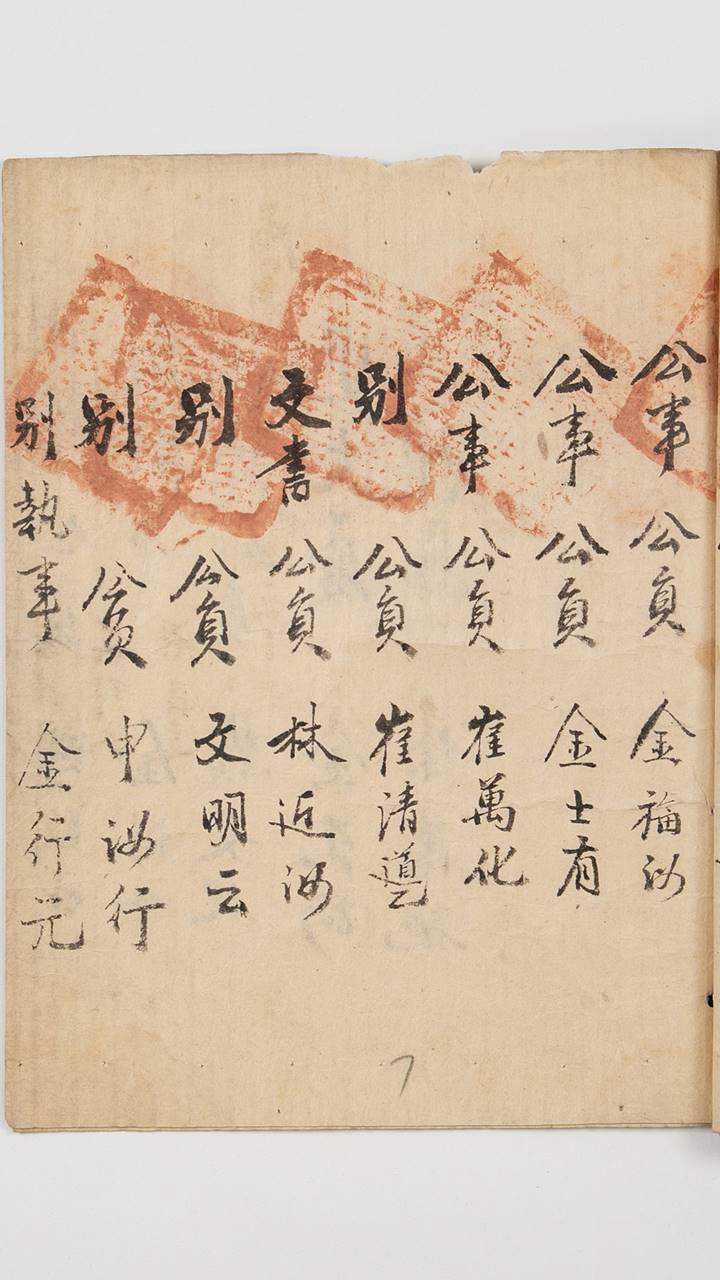 公事公員金福汝
公事公員金士有
公事公員崔萬化
別公員崔清道
文書公員林近汝
別公員文明云
別公員申汝行
別執事金行元
7